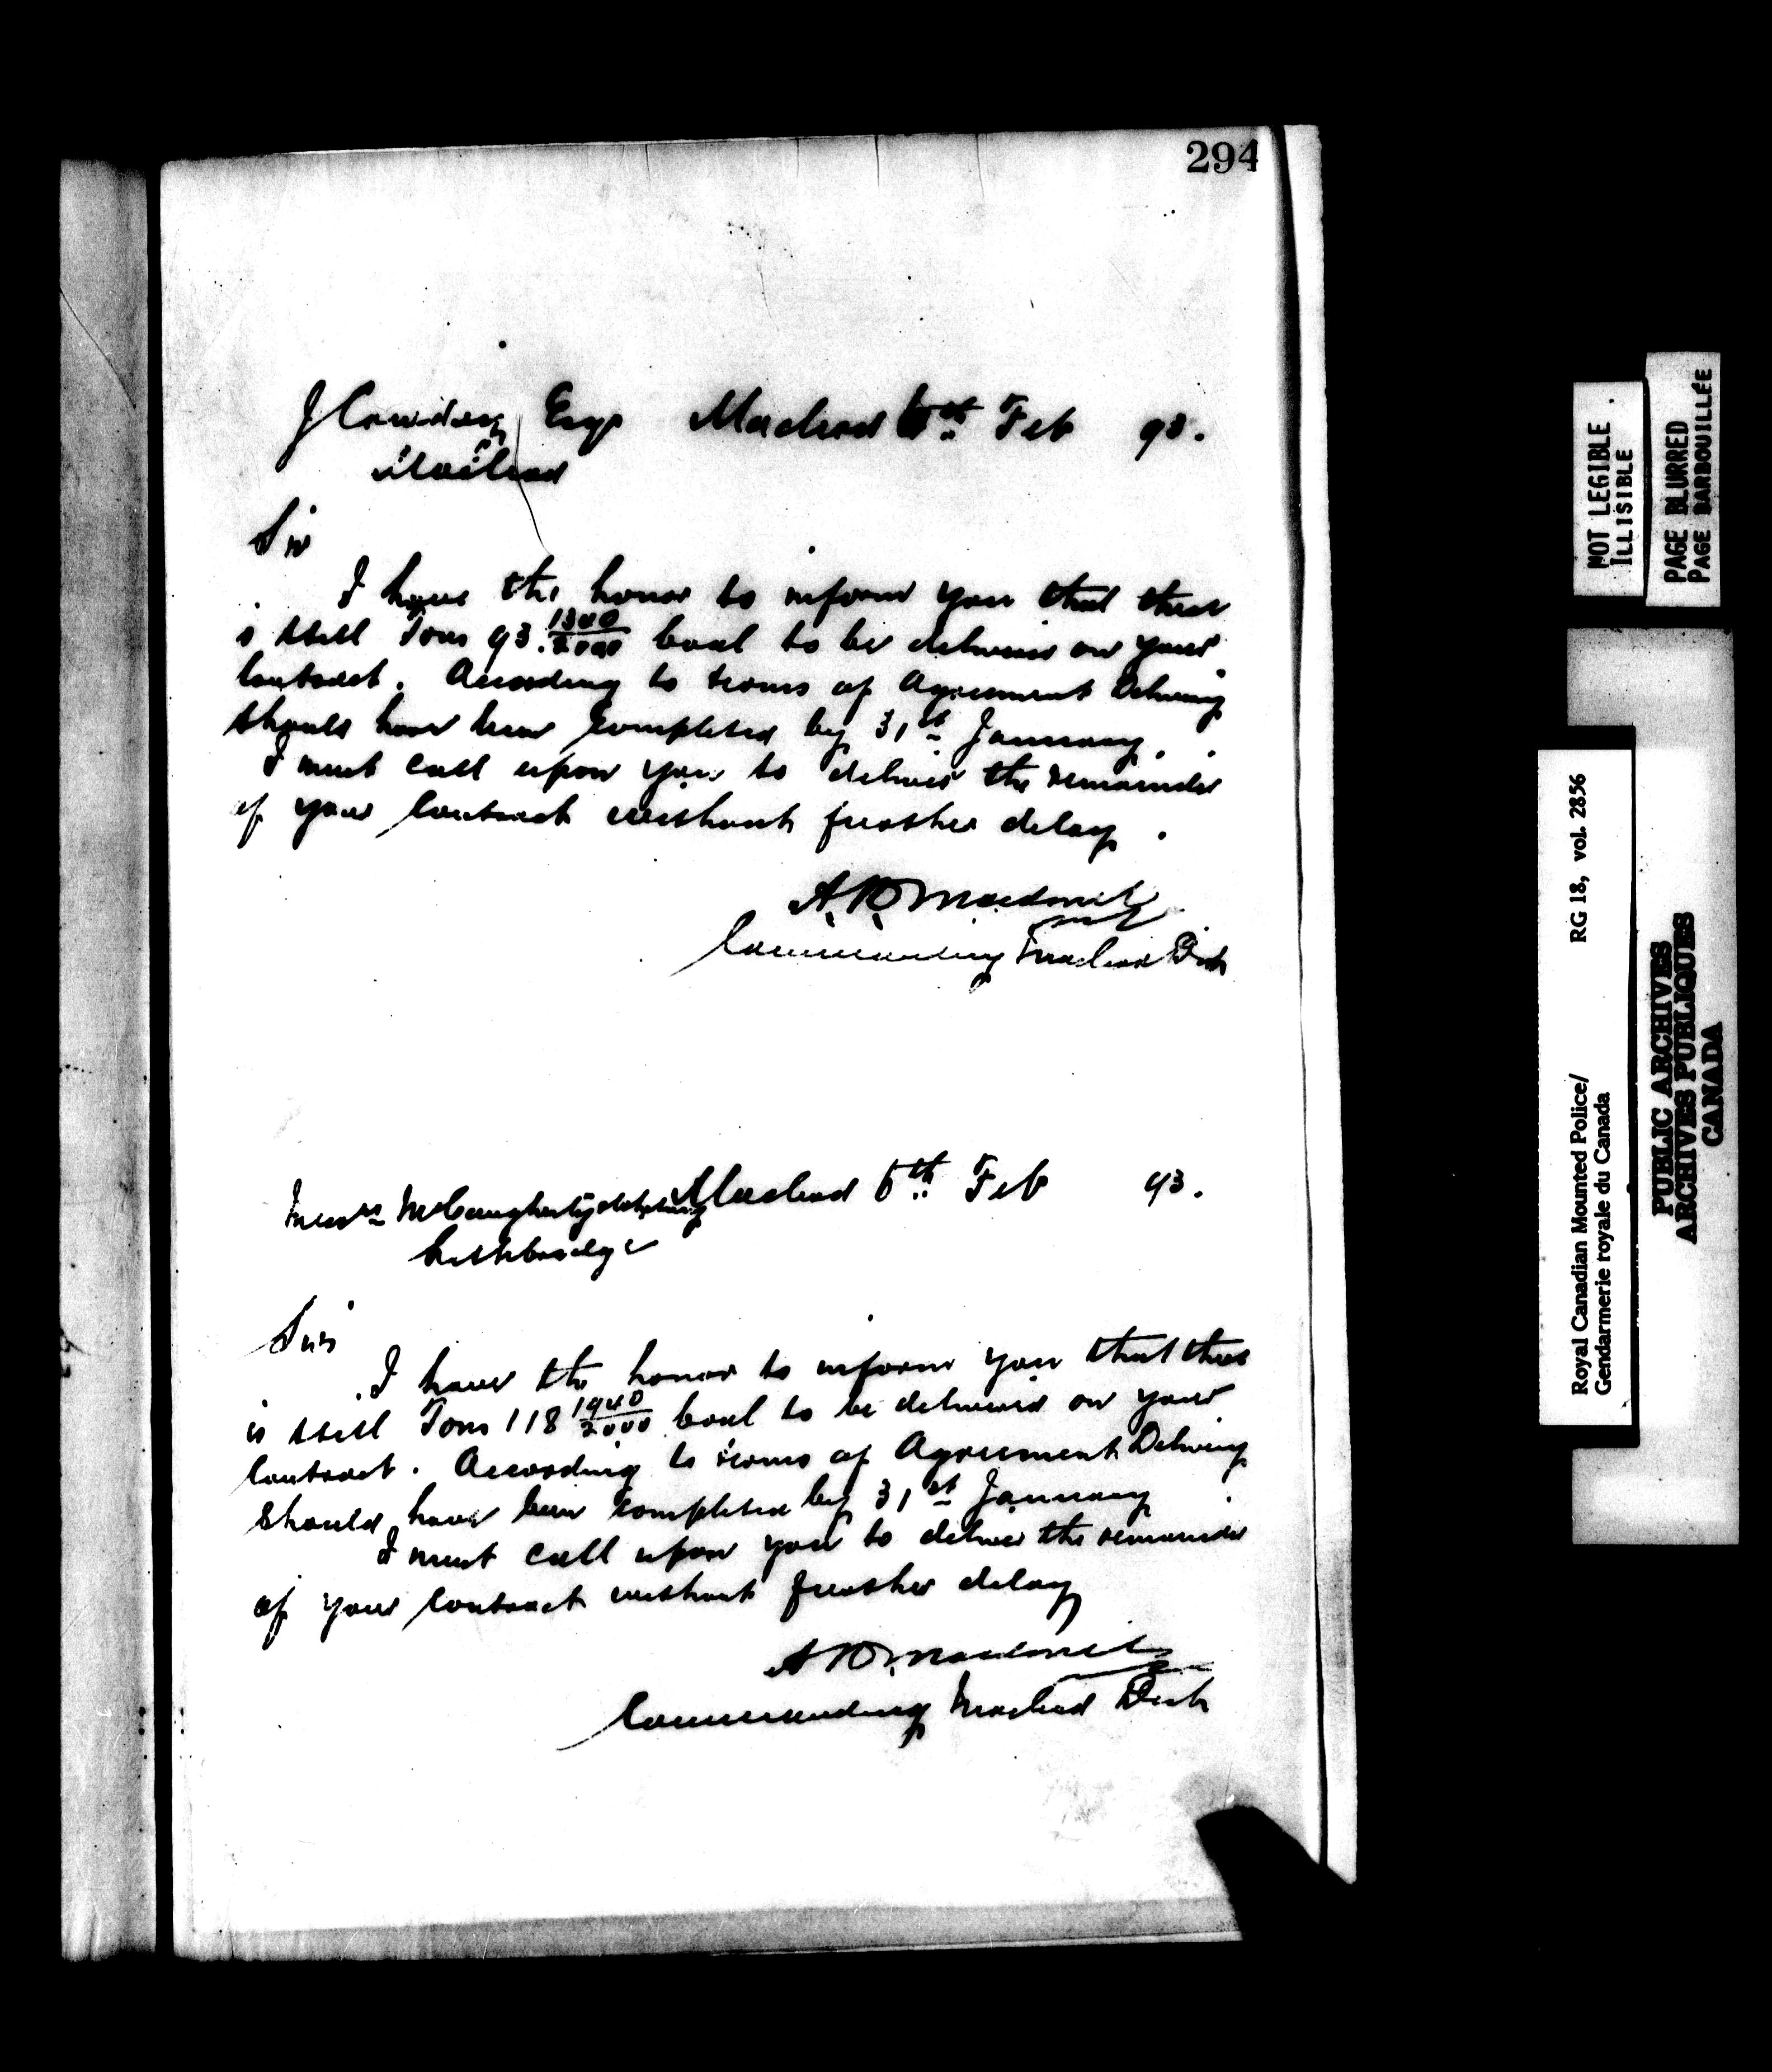 294
J Cowdry Esq Macleod 6th Feb 93.
Macleod
Sir
I have the honor to inform you that there
is still Tons 93. 1340/2000 Coal to be delivered on your
Contract. According to terms of Agreement Delivery
should have been completed by 31st January.
I must call upon you to deliver the remainder
of your Contract without further delay.
Commanding Macleod Dist
Macleod 6th Feb 93.
Messrs McCaugherty
Lethbridge
Sirs
I have the honor to inform you that there
is still Tons 118 1940/2000 Coal to be delivered on your
Contract. According to terms of Agreement Delivery
should have been completed by 31st January
I must call upon you to deliver the remainder
of your Contract without further delay
Commanding Macleod Dist
NOT LEGIBLE
ILLISIBLE
PAGE BLURRED
PAGE BARBOUILLÉE
RG 18, vol. 2856
Royal Canadian Mounted Police/
Gendarmerie royale du Canada
PUBLIC ARCHIVES
ARCHIVES PUBLIQUES
CANADA